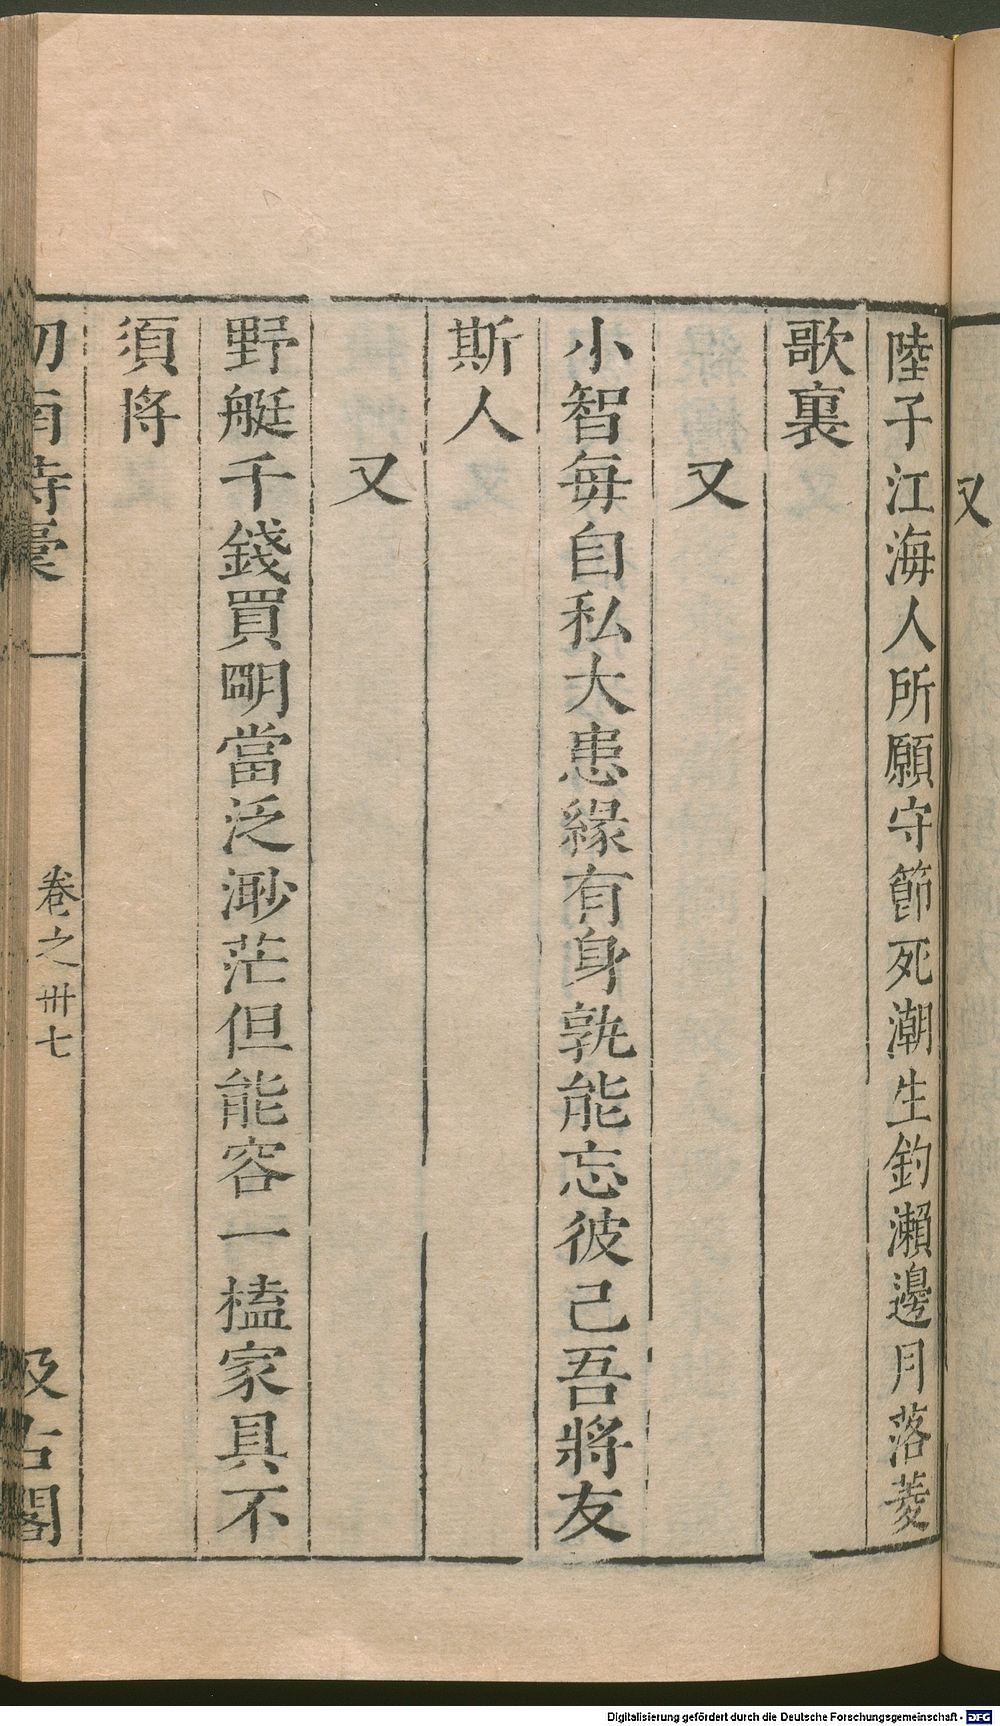 又
陸子江海人所願守節死潮生釣瀨邊月落菱
歌裏
又
小智每自私大患緣有身孰能忘彼己吾將友
斯人
又
野艇千錢買朙當泛渺茫但能容一榼家具不
須將
劒南詩稾
卷之卅七
汲古閣
Digitalisierung gefördert durch die Deutsche Forschungsgemeinschaft - DFG